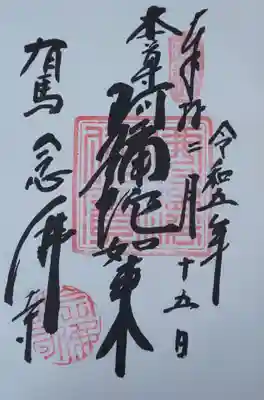 奉拝
令和五年
二月十五日
本尊
阿彌陀如来
有馬念佛寺